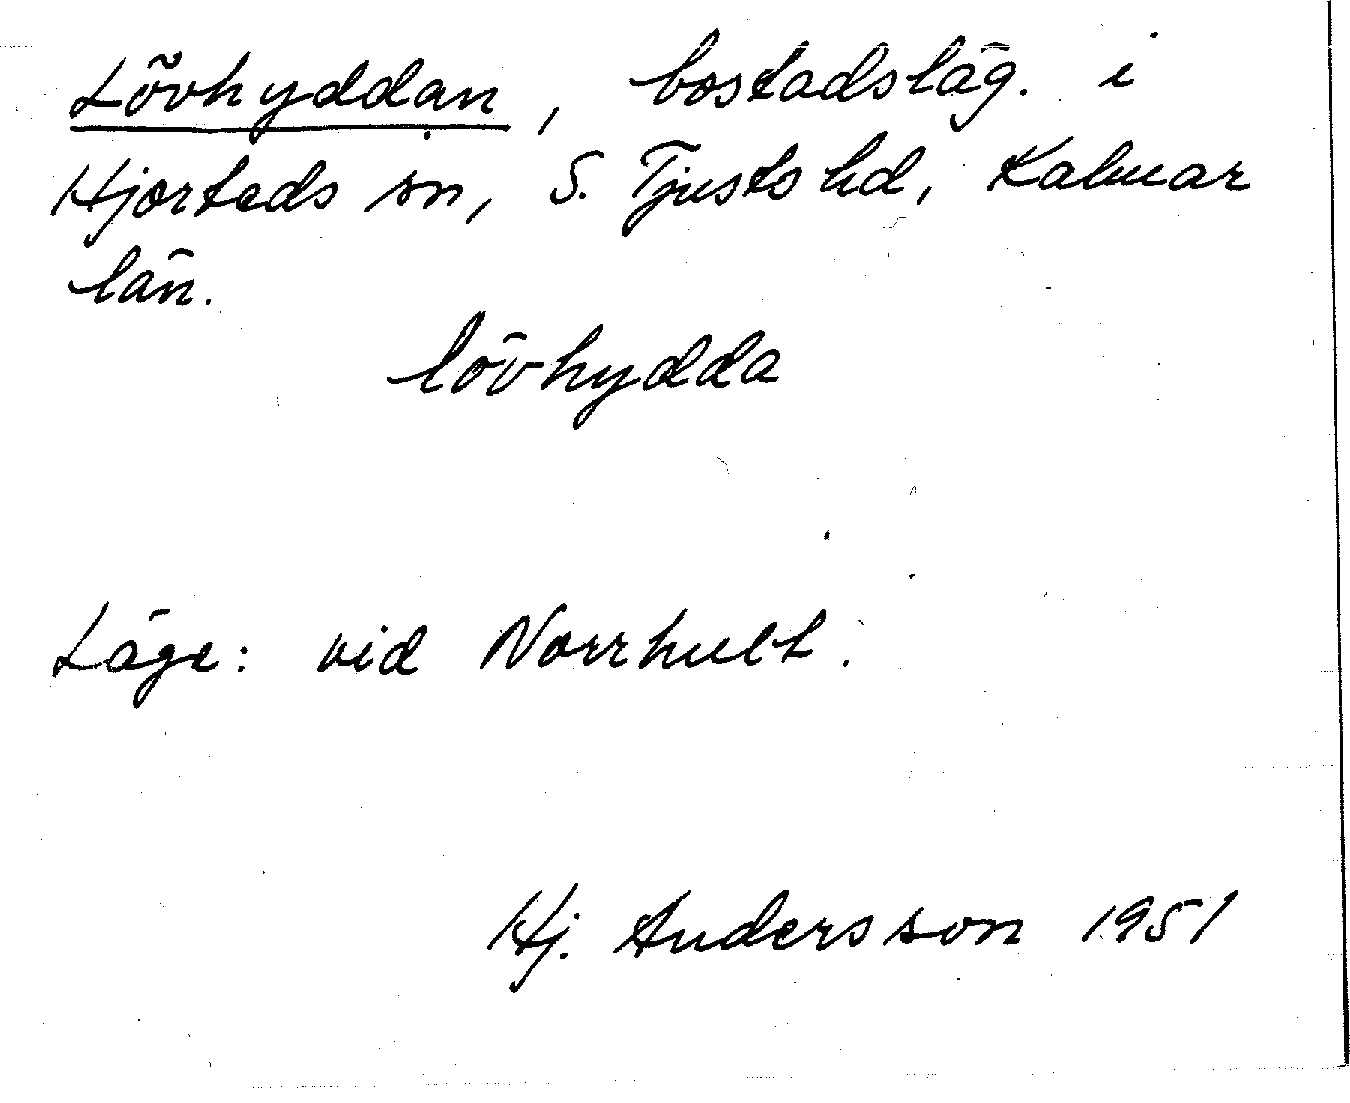 Lövhyddan, bostadsläg. i
Hjorteds sn, S. Tjusts hd, Kalmar
län.
lövhydda
Läge: vid Norrhult.
Hj. Andersson 1951